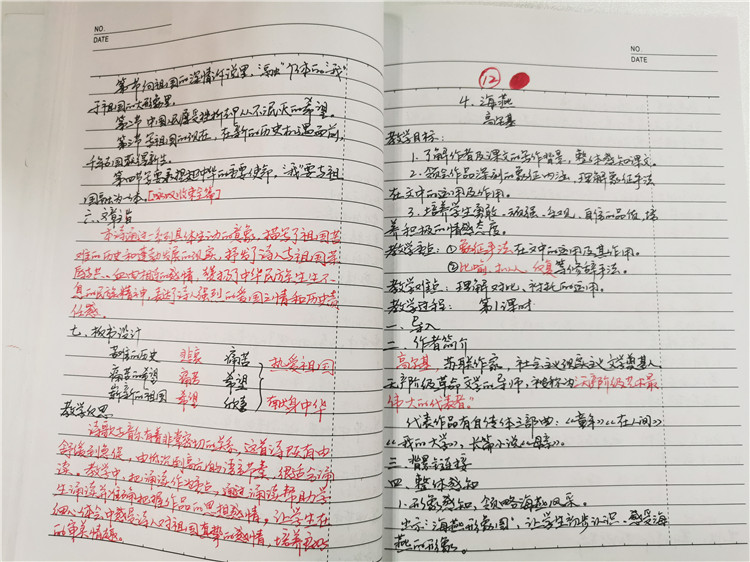 NO.
DATE
第一节向祖国的深情诉说里,融"个体的'我'
于祖国的大形象里。
第二节 中国感屡受挫折却从不泯灭的希望。
第三节写祖国的现在,在新的历史机遇面前,
千年古国获得新生。
第四节主要表现中华的重要使命,"我"要与祖
国融为一体。
六、主旨
本诗通过一系列具体生动的意象,描写了祖国苦
难的历史和蓬勃发展的现实,抒发了诗人与祖国荣
辱与共、血肉相连的感情,赞扬了中华民族生生不
息的民族精神,表达了诗人强烈的爱国之情和历史责
任感。
七、板书设计
苦难的历史 悲哀 痛苦
痛苦的希望 痛苦 希望 热爱祖国
崭新的祖国 希望 欣喜 献身中华
教学反思
诗歌与音乐有着非常密切的关系,这首诗所有由
舒缓到急促,由低沉到高昂的语言节奏,很适合诵
读。教学中,把诵读作为重点,通过诵读帮助学
生诵读并准确把握作品的思想感情,让学生在
细心体会中感受诗人对祖国真挚的感情,培养高尚
的审美情操。
NO.
DATE
12
4.海燕
高尔基
教学目标:
1.了解作者及课文的写作背景,整体感知课文。
2.领会作品深刻的象征内涵,理解象征手法
在文中的运用及作用。
3.培养学生勇敢、顽强、乐观、自信的品质,培
养积极的情感态度。
教学重点:①象征手法在文中的运用及其作用。
②比喻、拟人、反复等修辞手法。
教学难点:理解对比、衬托的运用。
教学过程: 第1课时
一、导入
二、作者简介
高尔基,苏联作家,社会主义现实主义文学奠基人,
无产阶级革命文学的导师,被称为"无产阶级艺术最
伟大的代表者"
代表作品有自传体三部曲:《童年》《在人间》
《我的大学》,长篇小说《母亲》。
三、背景链接
四、整体感知
1.形象感知,领略海燕风采。
出示"海燕形象图",让学生初步认识、感受海
燕的形象。